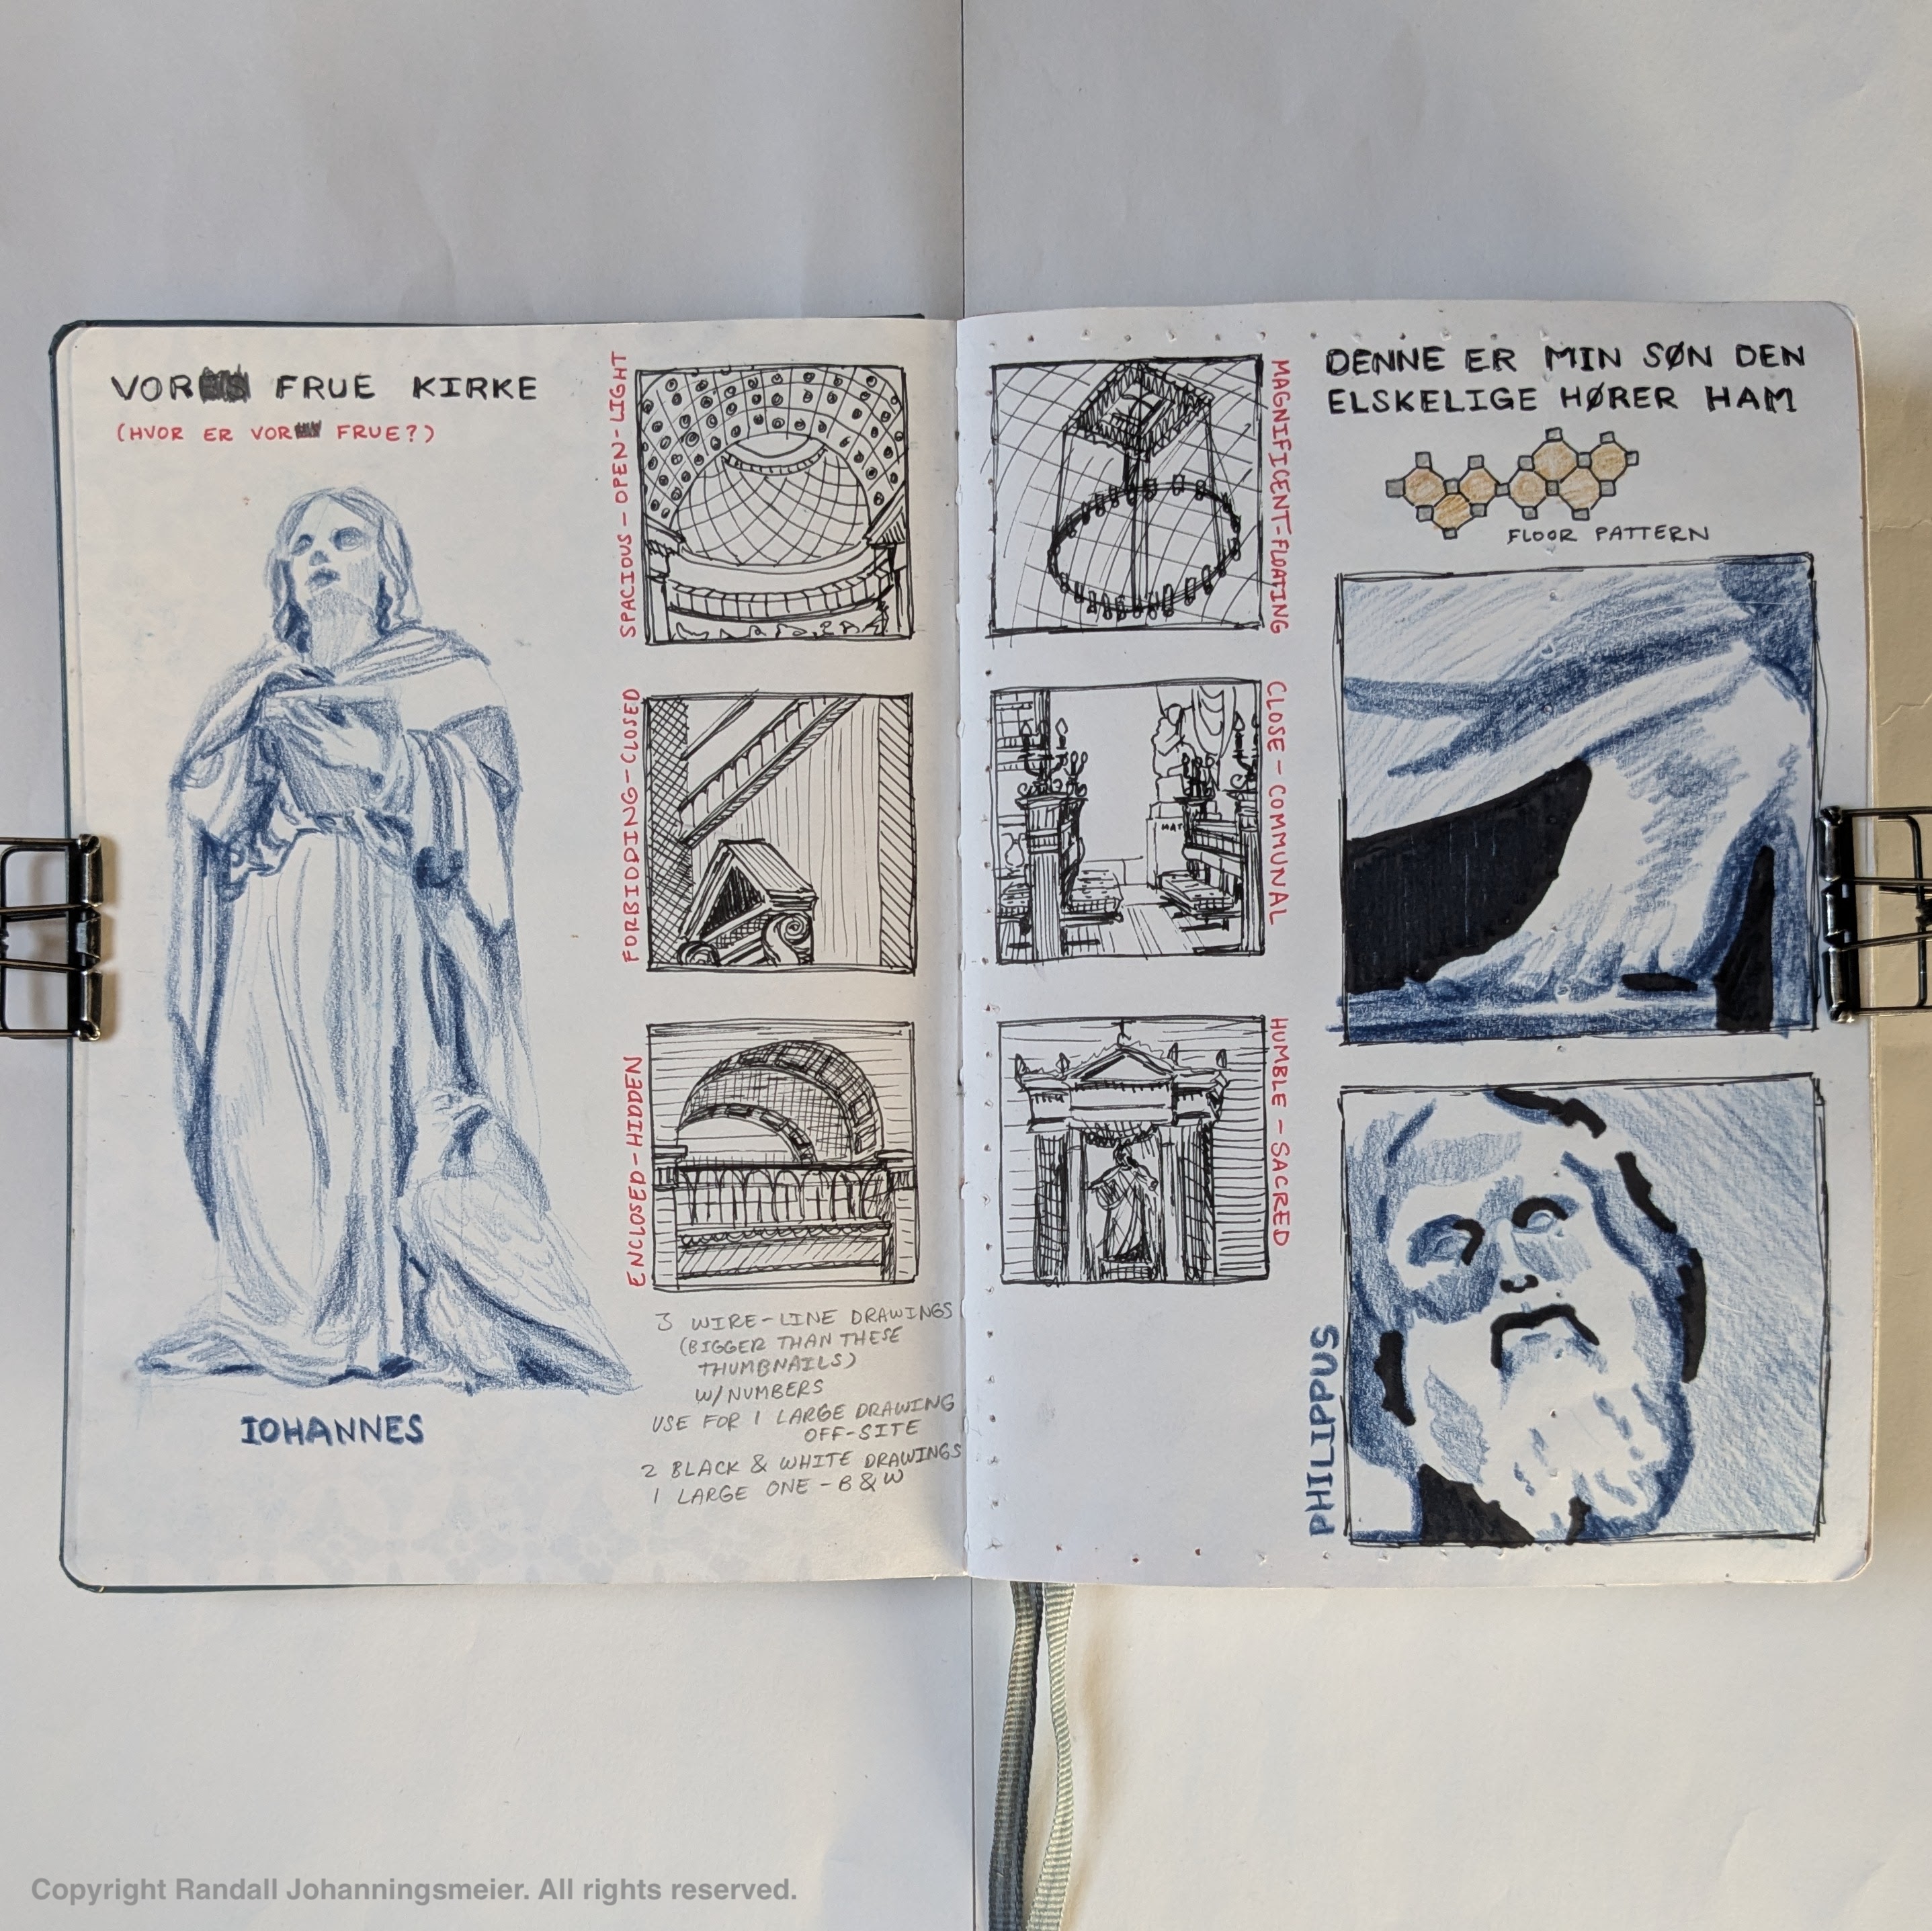 VOR FRUE KIRKE
(HVOR ER VOR FRUE?)
IOHANNES
SPACIOUS - OPEN - LIGHT
FORBIDDING - CLOSED
ENCLOSED - HIDDEN
3 WIRE-LINE DRAWINGS
(BIGGER THAN THESE
THUMBNAILS)
W/NUMBERS
USE FOR 1 LARGE DRAWING
OFF-SITE
2 BLACK & WHITE DRAWINGS
1 LARGE ONE - B & W
MAGNIFICENT - FLOATING
CLOSE - COMMUNAL
MAT
HUMBLE - SACRED
DENNE ER MIN SØN DEN
ELSKELIGE HØRER HAM
FLOOR PATTERN
PHILIPPUS
Copyright Randall Johanningsmeier. All rights reserved.